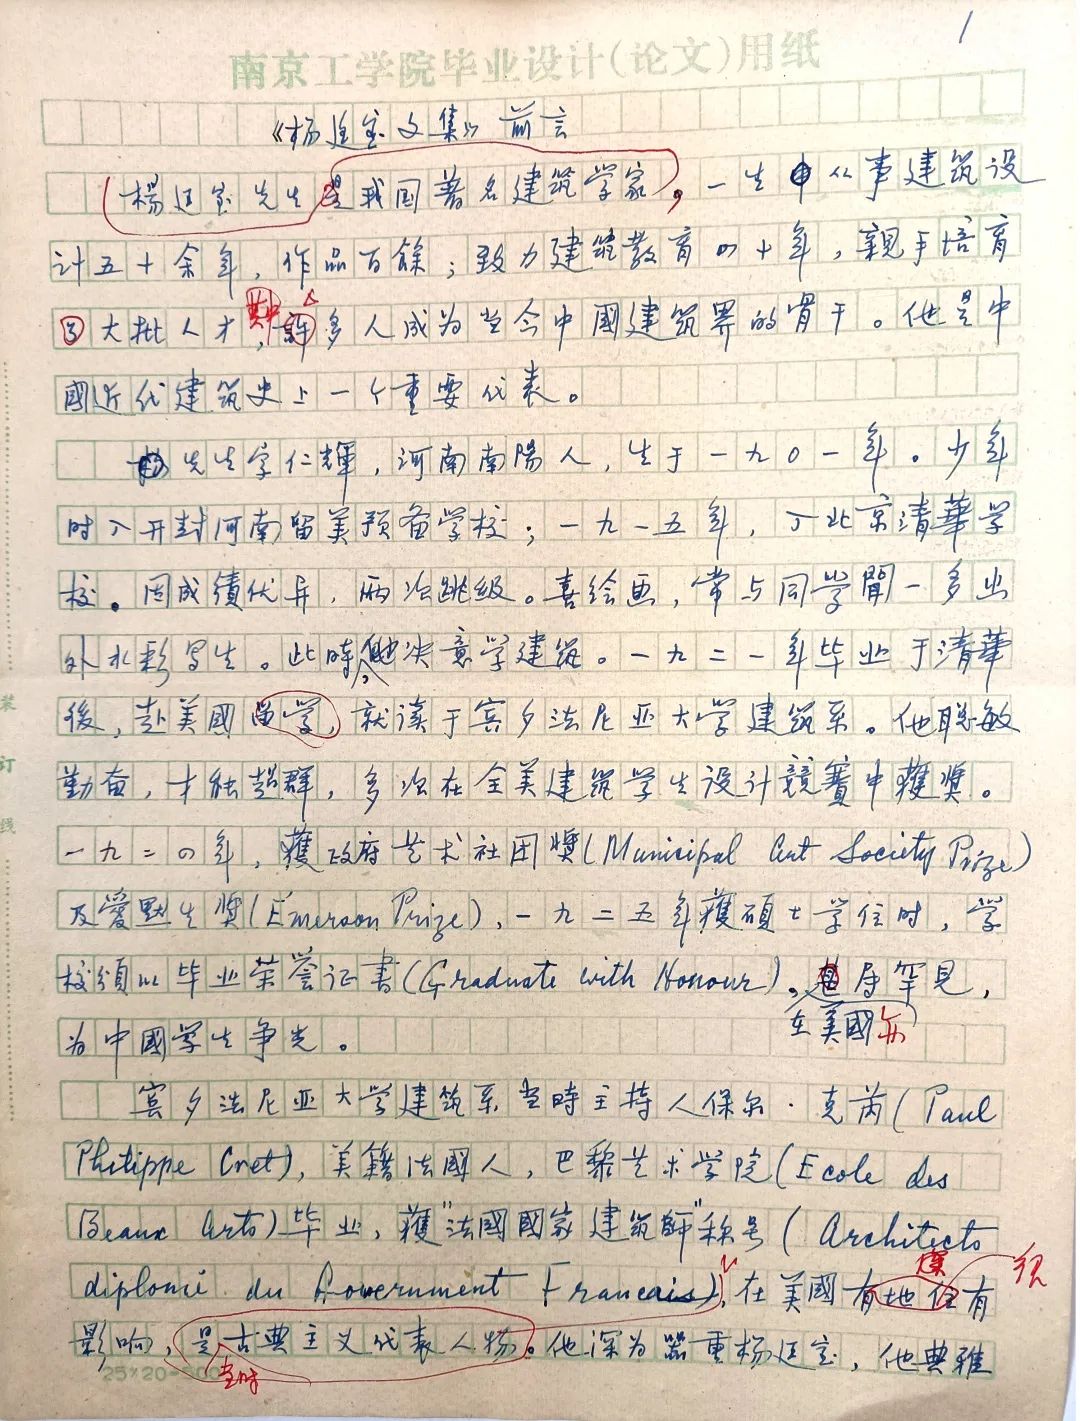 1
南京工学院毕业设计(论文)用纸
《杨廷宝文集》前言
楊廷宝先生是我国著名建筑学家，一生从事建筑设
计五十余年，作品百餘；致力建筑教育四十年，親手培育
了大批人才，其中許多人成为当今中國建筑界的骨干。他是中
國近代建筑史上一个重要代表。
先生字仁輝，河南南陽人，生于一九〇一年。少年
时入开封河南留美预备学校；一九一五年，入北京清華学
校。因成績优异，两次跳级。喜绘画，常与同学聞一多出
外水彩写生。此時他决意学建筑。一九二一年毕业于清華
後，赴美國留学，就读于宾夕法尼亚大学建筑系。他聪敏
勤奋，才能超群，多次在全美建筑学生设计競賽中獲獎。
一九二四年，獲政府艺术社团獎(Municipal Art Society Prize)
及愛默生獎(Emerson Prize)，一九二五年獲碩士学位时，学
校頒以毕业荣誉证書(Graduate with Honour)。屬罕見，
在美國亦
为中國学生争光。
宾夕法尼亚大学建筑系当時主持人保尔·克芮(Paul
Philippe Cret)，美籍法國人，巴黎艺术学院(Ecole des
Beaux Arts)毕业，獲"法國國家建筑師"称号(Architecte
diplomé du Gouvernment Francais)，在美國有地位有
影响，是古典主义代表人物。他深为器重杨廷宝，他典雅
当时
25×20=500
装
订
线